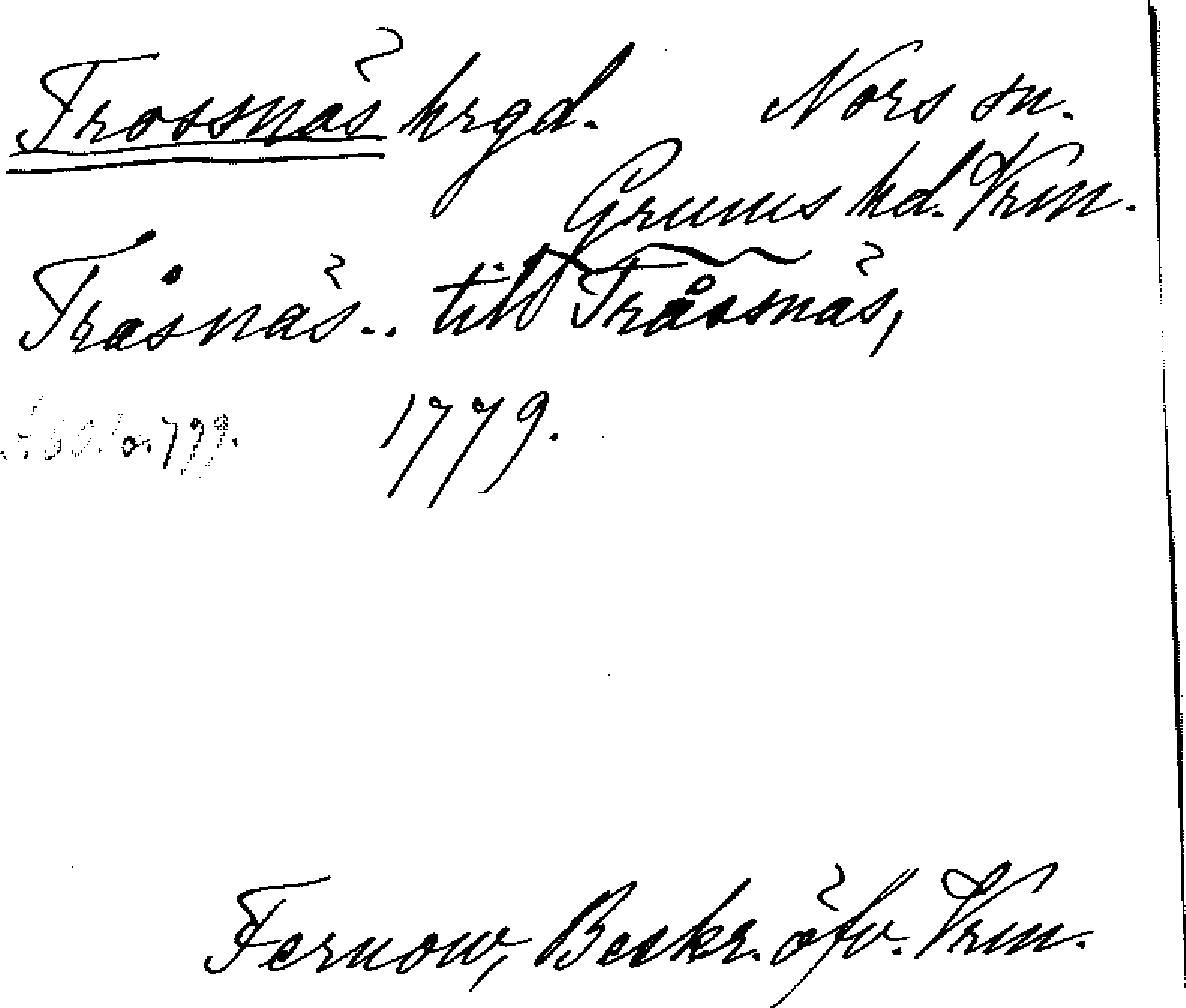 Trossnäs hrgd. Nors sn.
Grums hd. Vrm.
Tråsnäs.. till Tråssnäs,
1779.
Fernow, Beskr. öfv. Vrm.